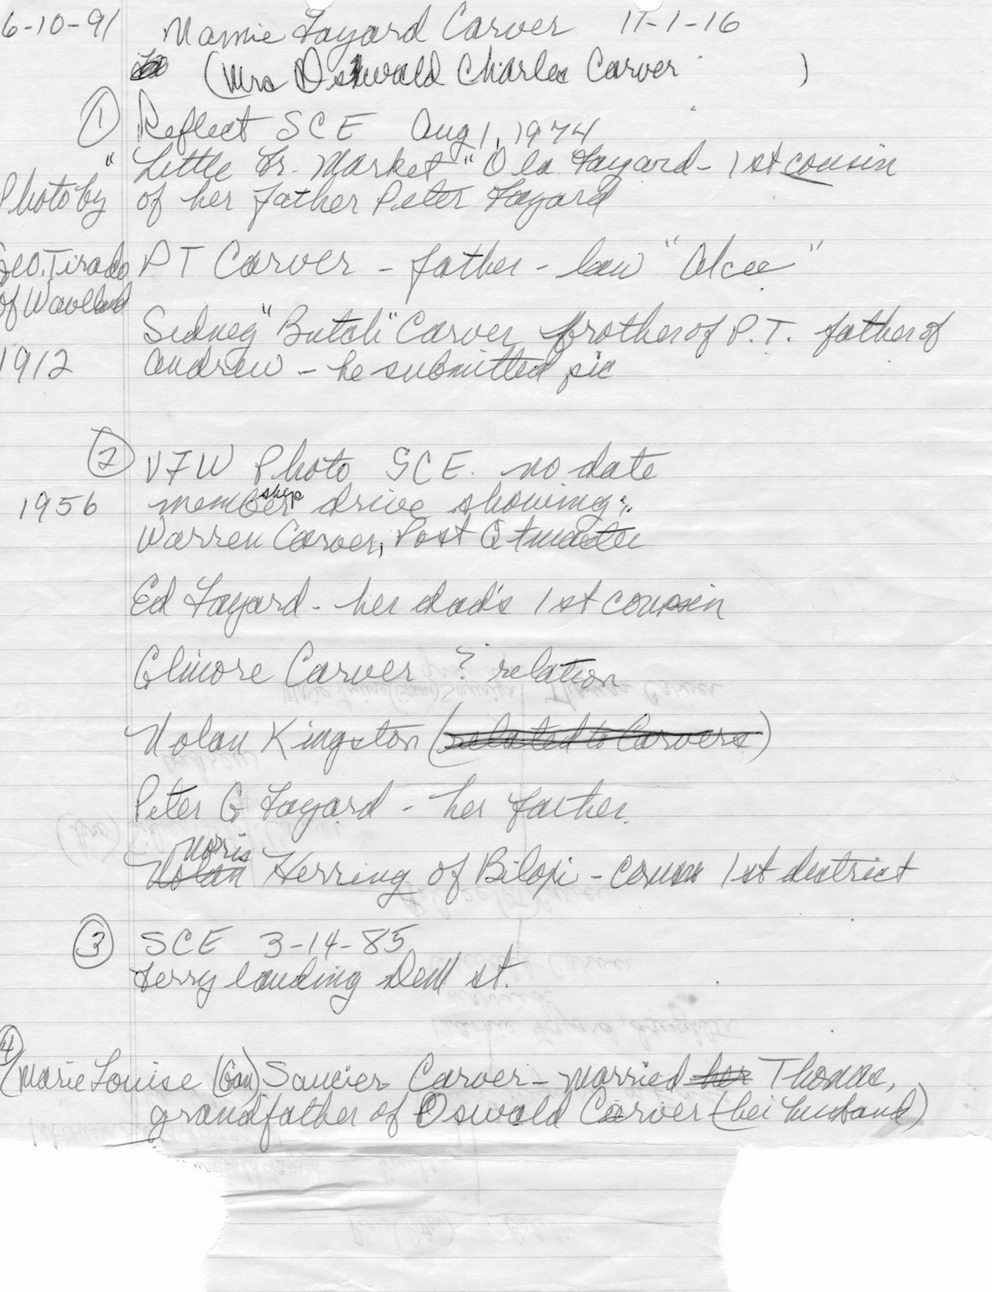 6-10-91 Mamie Fayard Carver 11-1-16
(Mrs Oswald Charles Carver )
① Reflect SCE Aug 1, 1974
" Little Fr. Market " Ola Fayard - 1st cousin
Photo by of her father Peter Fayard
Geo. Tirado PT Carver - father - law "Alcee"
of Waveland
Sidney "Butch" Carver brother of P.T. father of
1912 Andrew - he submitted pic
② VFW Photo SCE. no date
1956 membership drive showing:
Warren Carver, Post Qtmaster
Ed Fayard - her dad's 1st cousin
Elmore Carver ? relation
Nolan Kingston (related to Carvers)
Peter G Fayard - her father.
Noris
Nolan Herring of Biloxi - 1st district
③ SCE 3-14-85
Ferry landing Dem st.
④
(Marie Louise (Gau) Saucier Carver - married her Thomas,
grandfather of Oswald Carver (her husband)